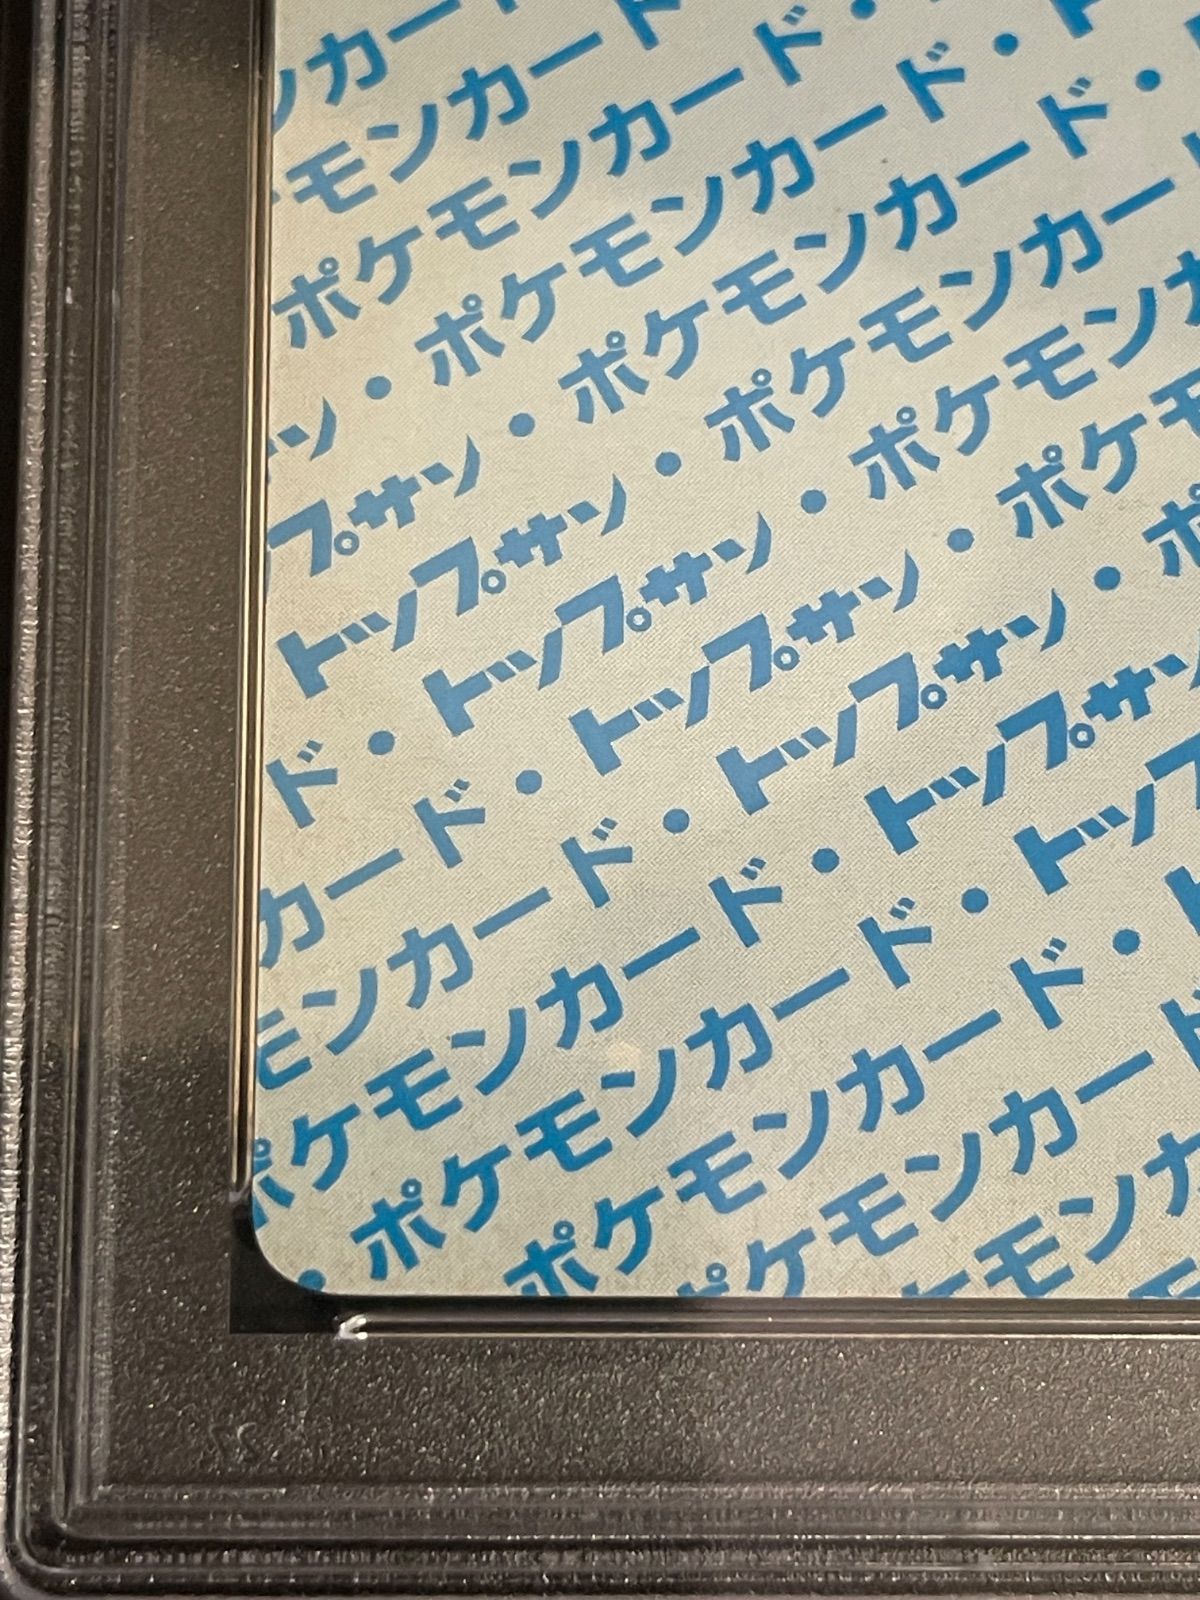 ンカー
モンカード
ポケモンカード・
ン・ポケモンカード・ト
プサン・ポケモンカード・
トップサン・ポケモンカー
ド・トップサン・ポケモン
カード・トップサン・ポケモ
モンカード・トップサン・ポ
ポケモンカード・トップサン
・ポケモンカード・トップ
ポケモンカード・ト
ポケモンカー
モンカ